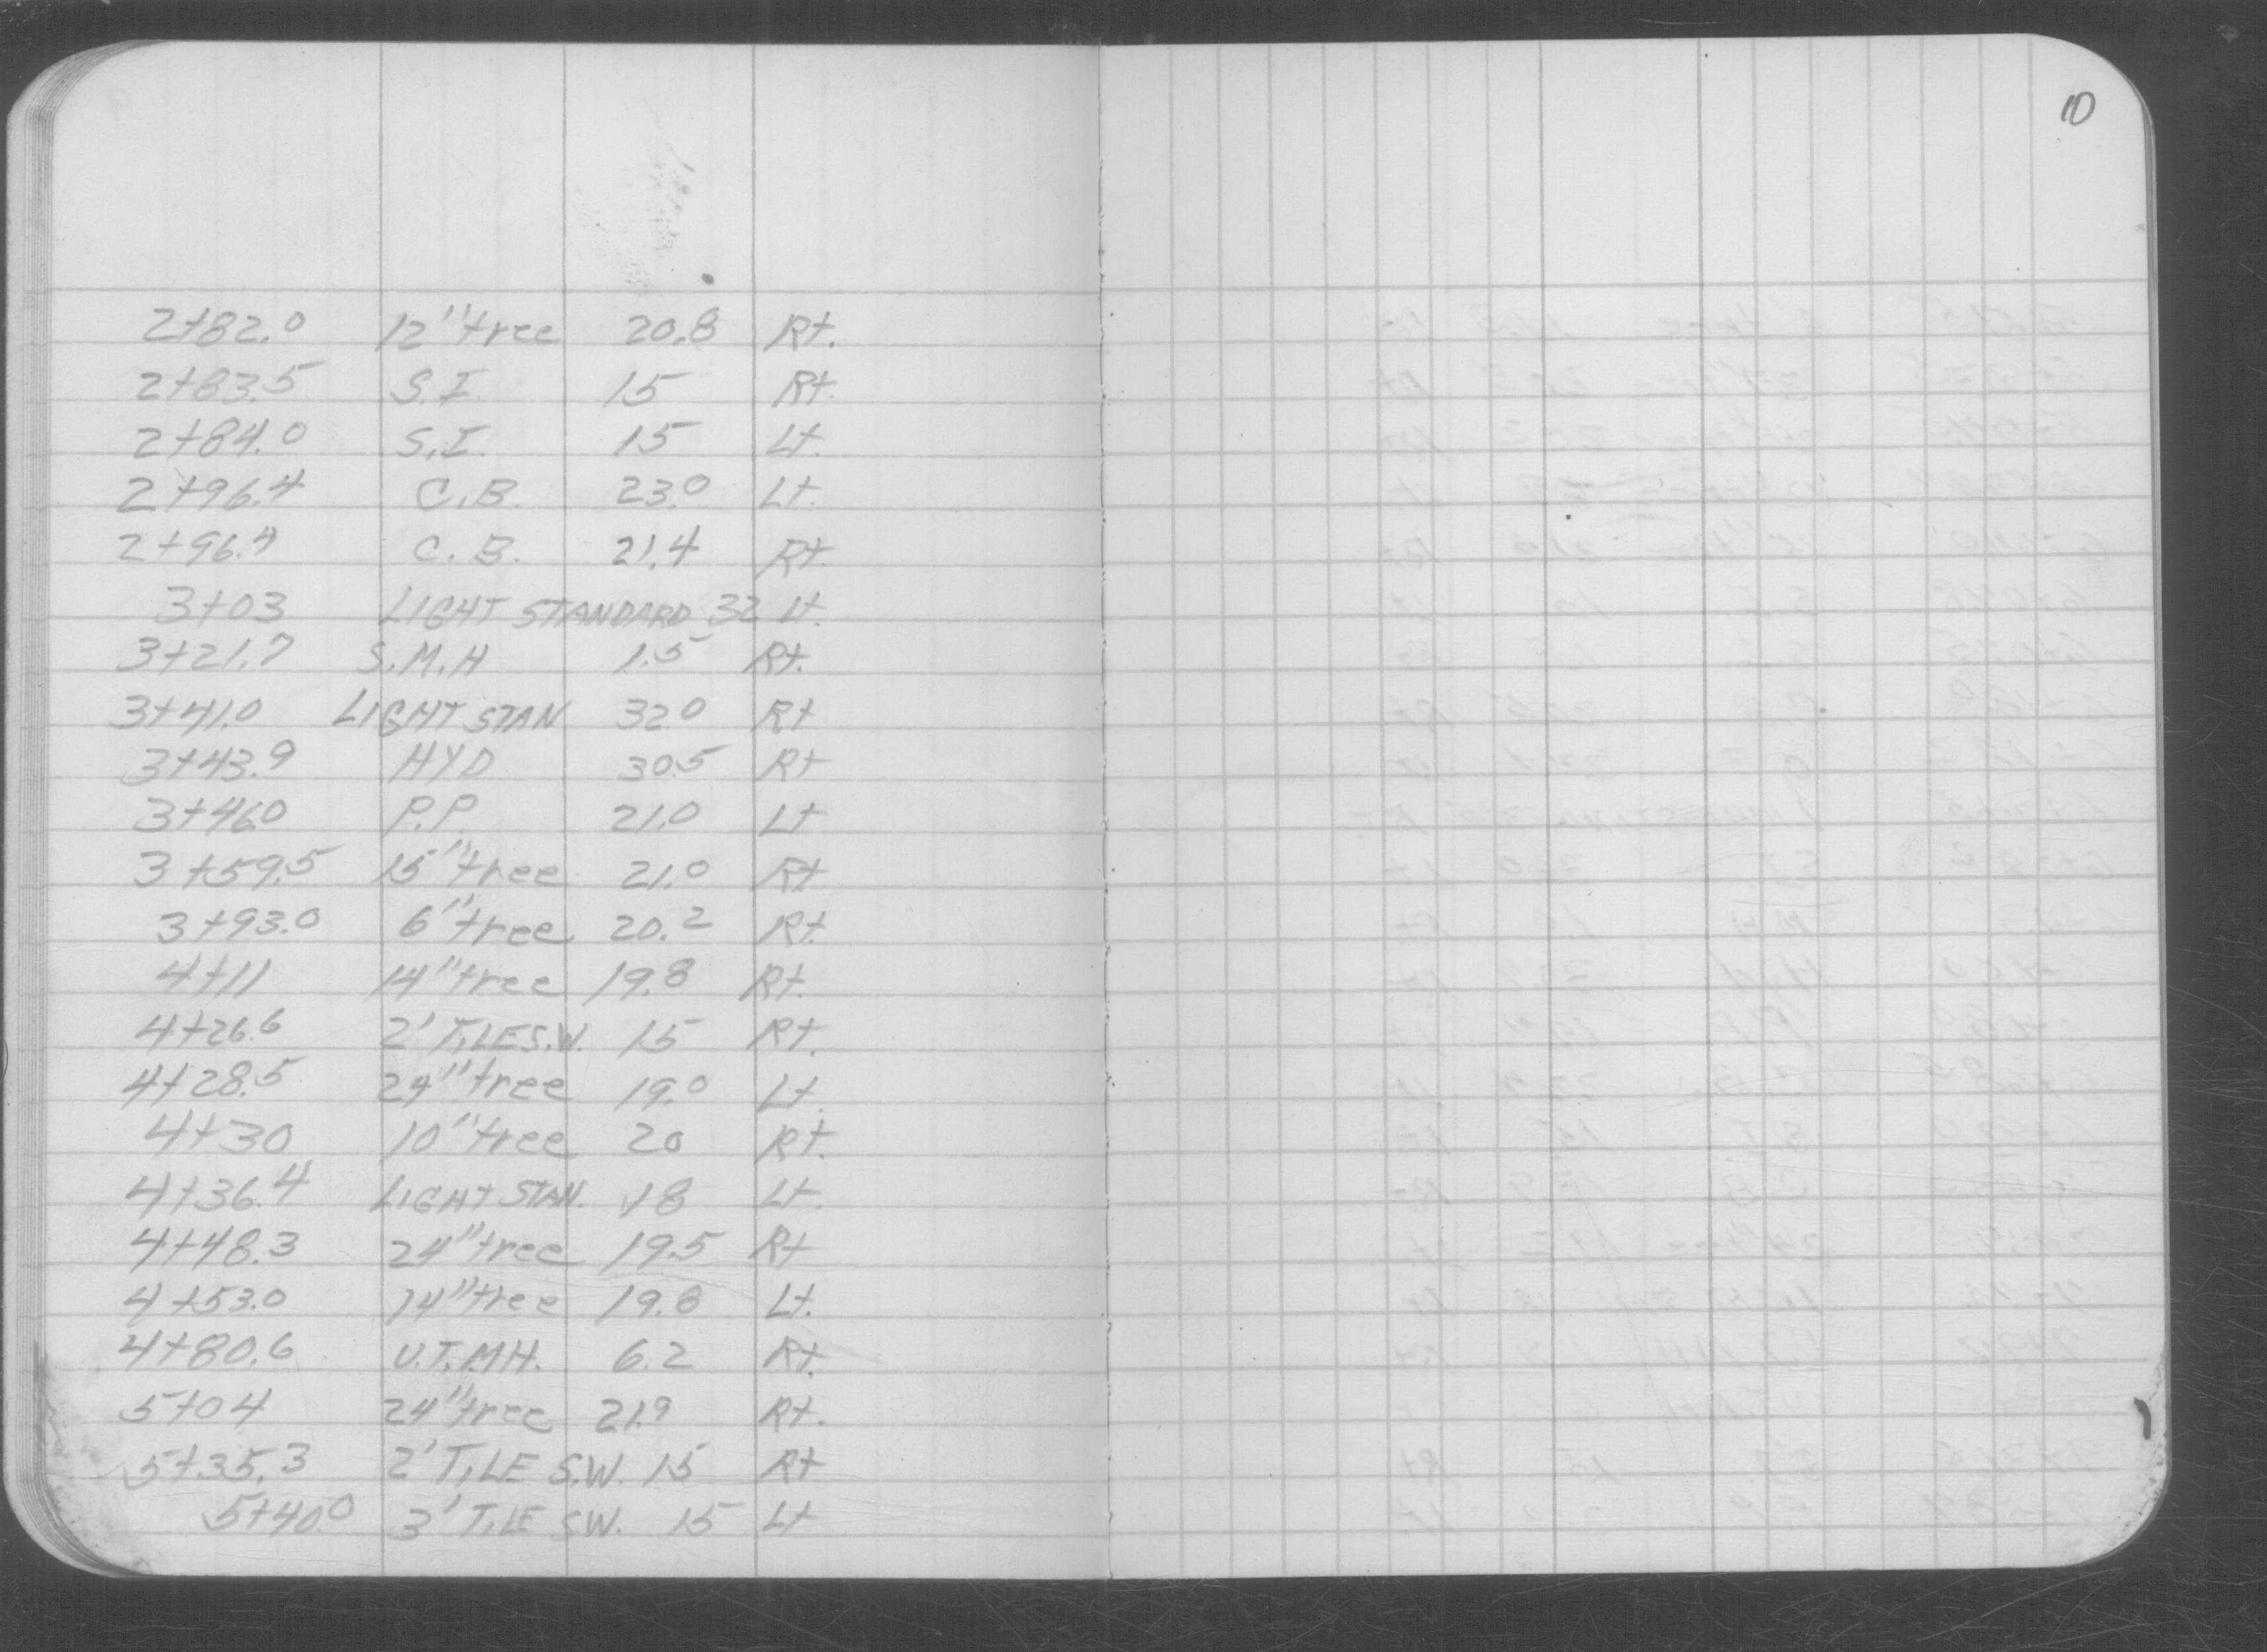 10
2+82.0 12" tree 20.8 Rt.
2+83.5 S.I. 15 Rt.
2+84.0 S.I. 15 Lt.
2+96.4 C.B. 23.0 Lt.
2+96.4 C.B. 21.4 Rt.
3+03 LIGHT STANDARD 32 Lt.
3+21.7 S.M.H 1.5 Rt.
3+41.0 LIGHT STAN 32.0 Rt
3+43.9 HYD 30.5 Rt
3+46.0 P.P. 21.0 Lt
3+59.5 15" tree 21.0 Rt
3+93.0 6" tree 20.2 Rt.
4+11 14" tree 19.8 Rt.
4+26.6 2' TILE S.W. 15 Rt.
4+28.5 24" tree 19.0 Lt.
4+30 10" tree 20 Rt.
4+36.4 LIGHT STAN. 18 Lt.
4+48.3 24" tree 19.5 Rt
4+53.0 14" tree 19.8 Lt.
4+80.6 U.T.M.H. 6.2 Rt.
5+04 24" tree 21.9 Rt.
5+35.3 2' TILE S.W. 15 Rt
5+40.0 3' TILE S.W. 15 Lt